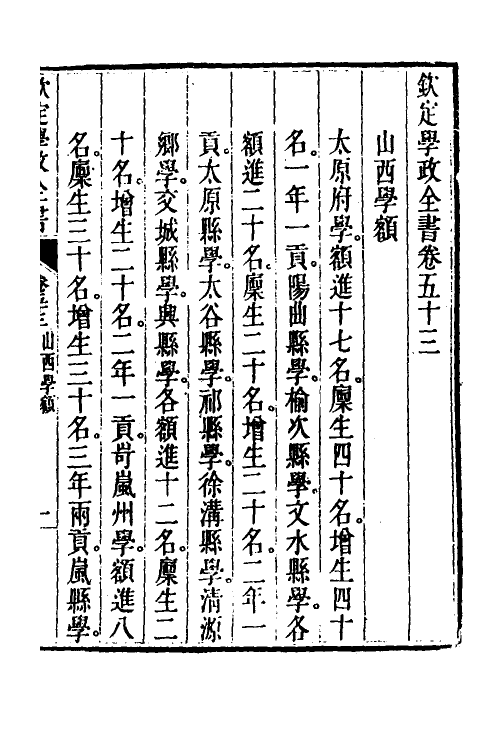 欽定學政全書卷五十三
山西學額
太原府學。額進十七名。廩生四十名。增生四十
名。一年一貢。陽曲縣學。榆次縣學。文水縣學。各
額進二十名。廩生二十名。增生二十名。二年一
貢。太原縣學。太谷縣學。祁縣學。徐溝縣學。清源
鄉學。交城縣學。興縣學。各額進十二名。廩生二
十名。增生二十名。二年一貢。岢嵐州學。額進八
名。廩生三十名。增生三十名。三年兩貢。嵐縣學。
欽定學政全書
卷五十三 山西學額
一